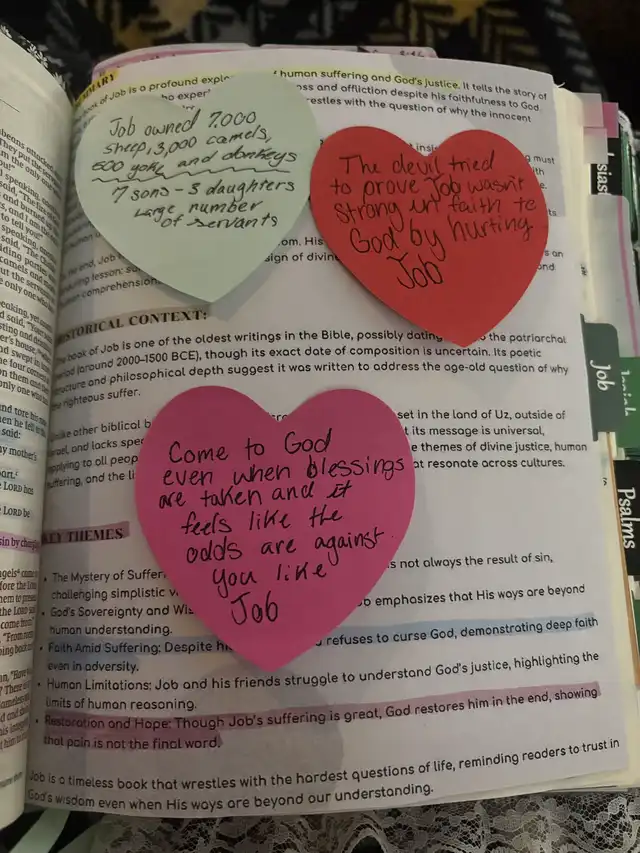 MMARY
ok of Job is a profound explo
f human suffering and God's justice. It tells the story of
ss and affliction despite his faithfulness to God.
restles with the question of why the innocent
must
Job owned 7,000
sheep, 3,000 camels,
500 yoke and donkeys
7 sons - 3 daughters
Large number
of servants
The devil tried
to prove Job wasn't
strong in faith to
God by hurting
Job
om. His
ign of divin
ISTORICAL CONTEXT:
ook of Job is one of the oldest writings in the Bible, possibly dating
the patriarchal
riod (around 2000–1500 BCE), though its exact date of composition is uncertain. Its poetic
ucture and philosophical depth suggest it was written to address the age-old question of why
righteous suffer.
nlike other biblical b
set in the land of Uz, outside of
rael, and lacks spec
t its message is universal,
pplying to all peop
e themes of divine justice, human
uffering, and the li
at resonate across cultures.
Come to God
even when blessings
are taken and it
feels like the
odds are against
you like
Job
KEY THEMES
• The Mystery of Suffer
s not always the result of sin,
challenging simplistic v
• God's Sovereignty and Wis
b emphasizes that His ways are beyond
human understanding.
• Faith Amid Suffering: Despite hi
refuses to curse God, demonstrating deep faith
even in adversity.
• Human Limitations: Job and his friends struggle to understand God's justice, highlighting the
limits of human reasoning.
• Restoration and Hope: Though Job's suffering is great, God restores him in the end, showing
that pain is not the final word.
Job is a timeless book that wrestles with the hardest questions of life, reminding readers to trust in
God's wisdom even when His ways are beyond our understanding.
Job
Psalms